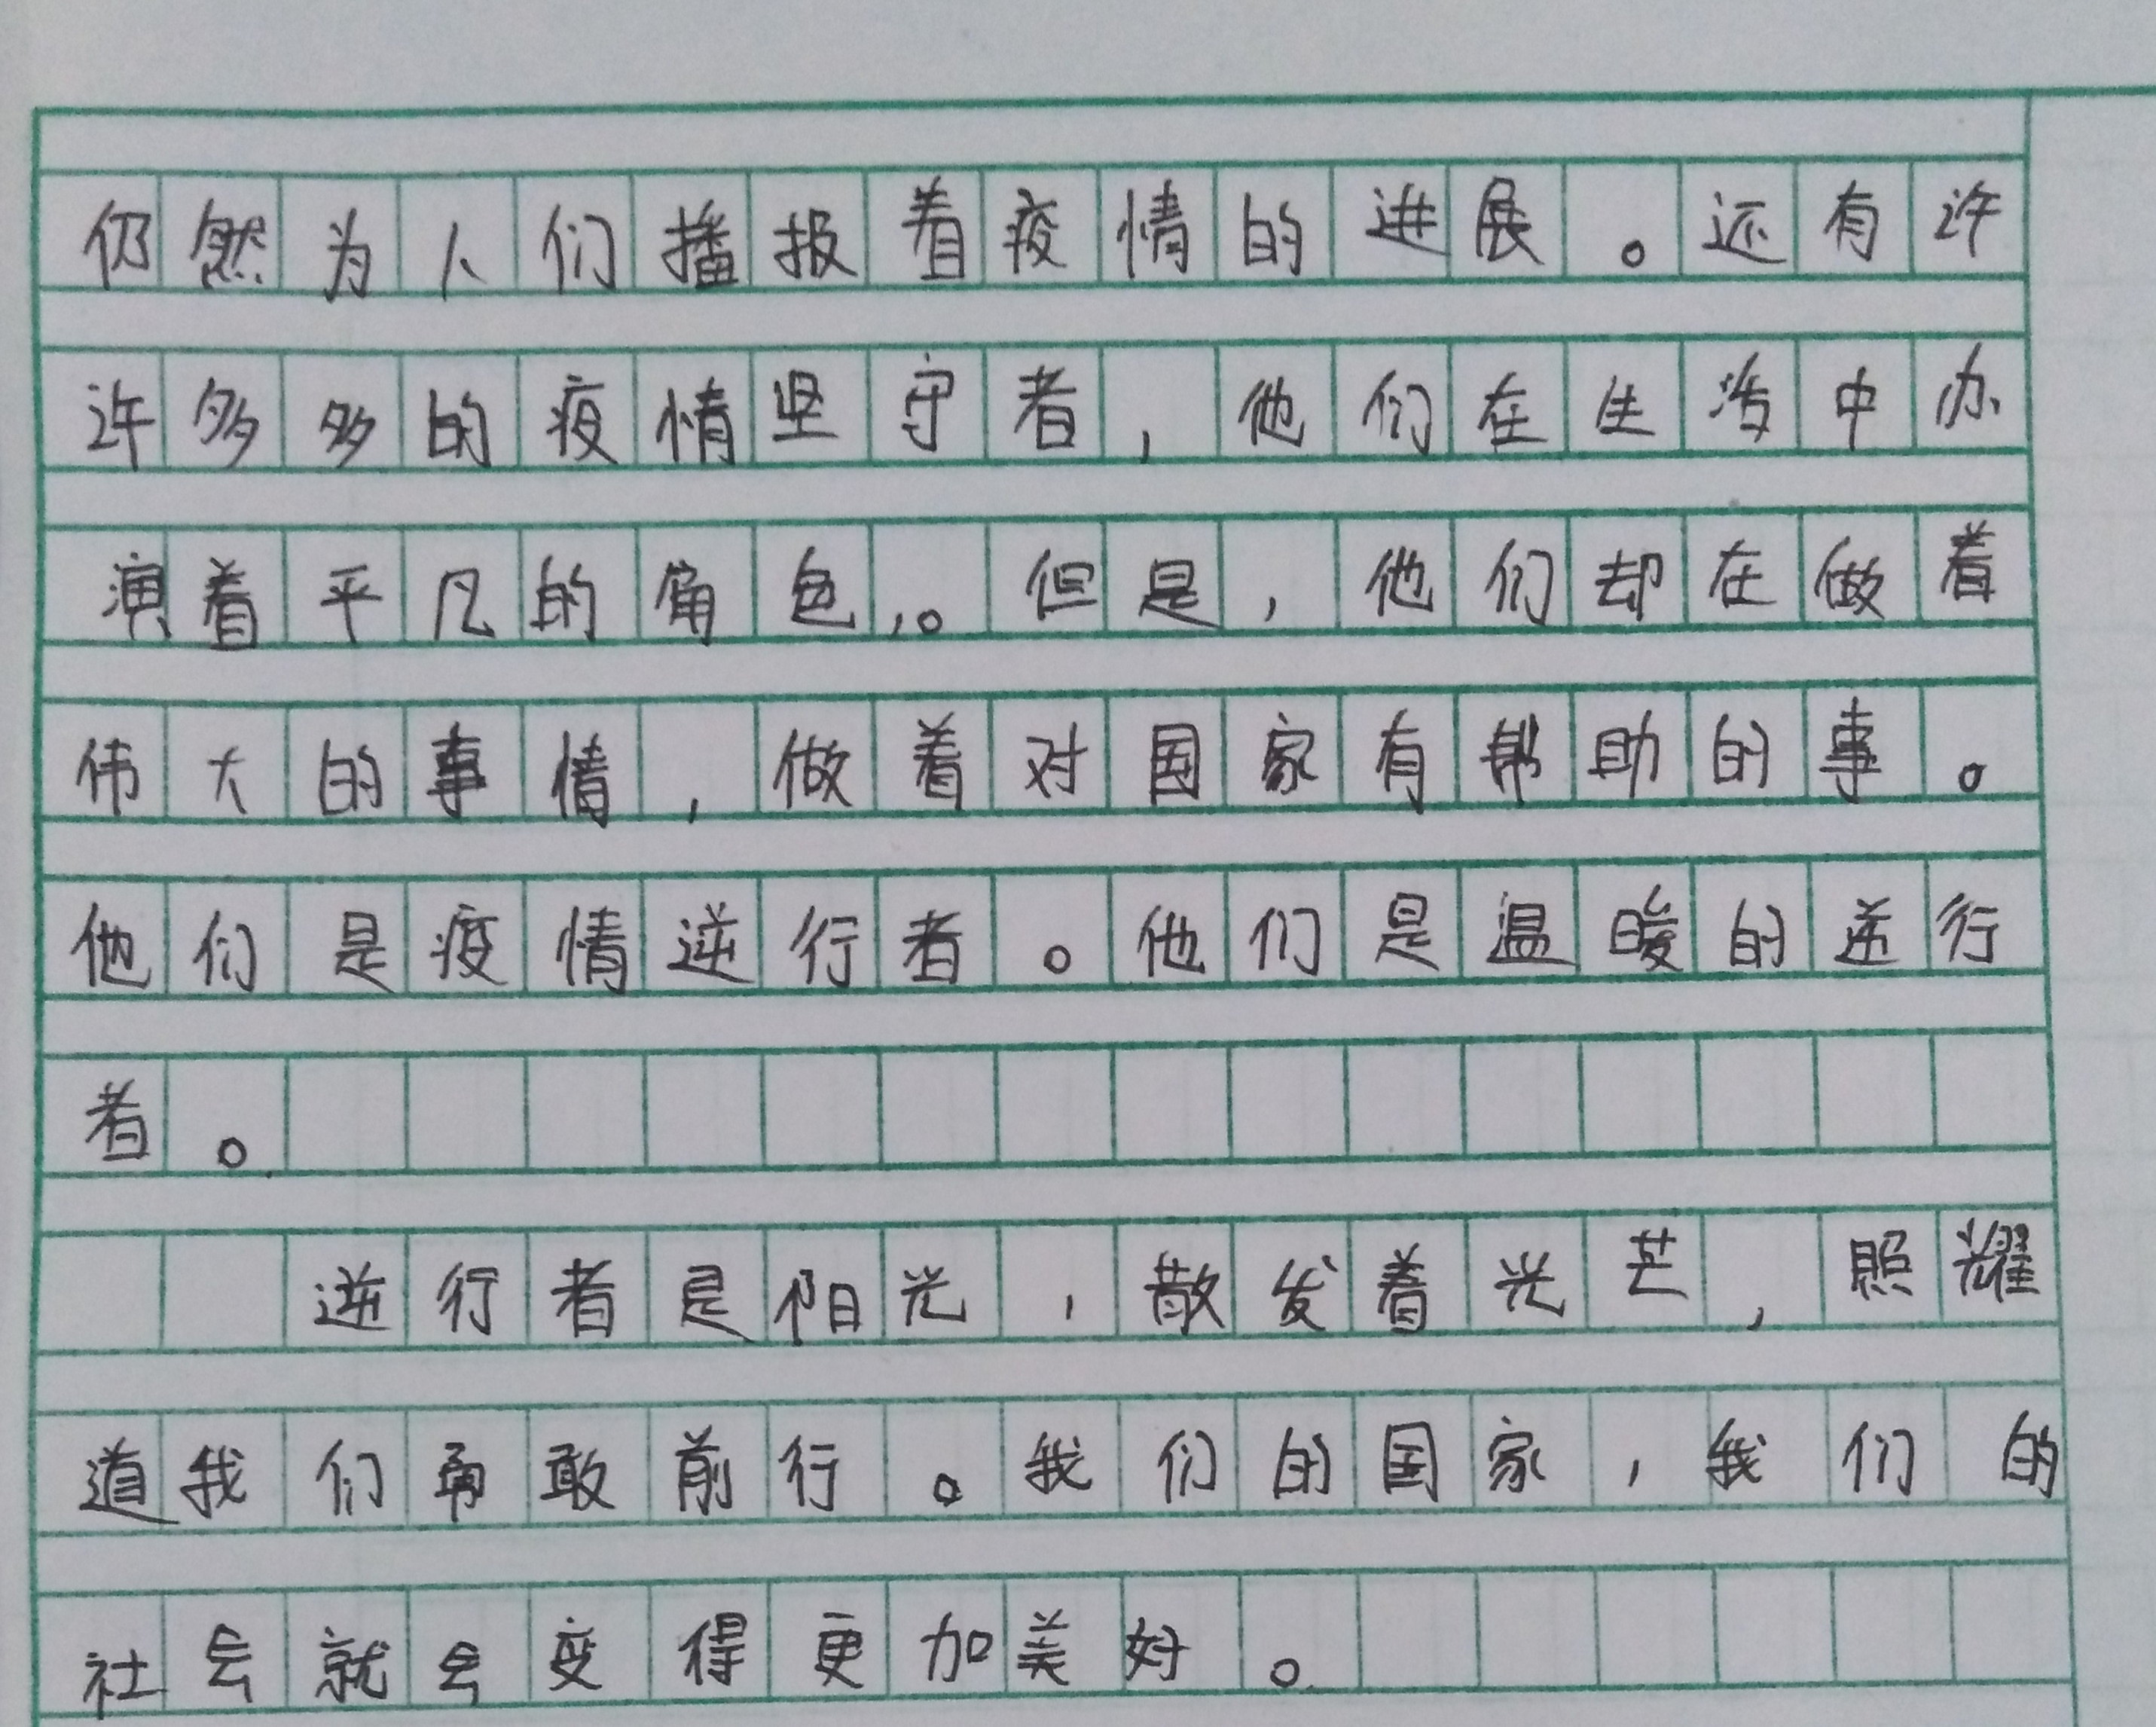 仍然为人们播报着疫情的进展。还有许
许多多的疫情坚守者，他们在生活中办
演着平凡的角色，。但是，他们却在做着
伟大的事情，做着对国家有帮助的事。
他们是疫情逆行者。他们是温暖的逆行
者。
逆行者是阳光，散发着光芒，照耀
道我们勇敢前行。我们的国家，我们的
社会就会变得更加美好。